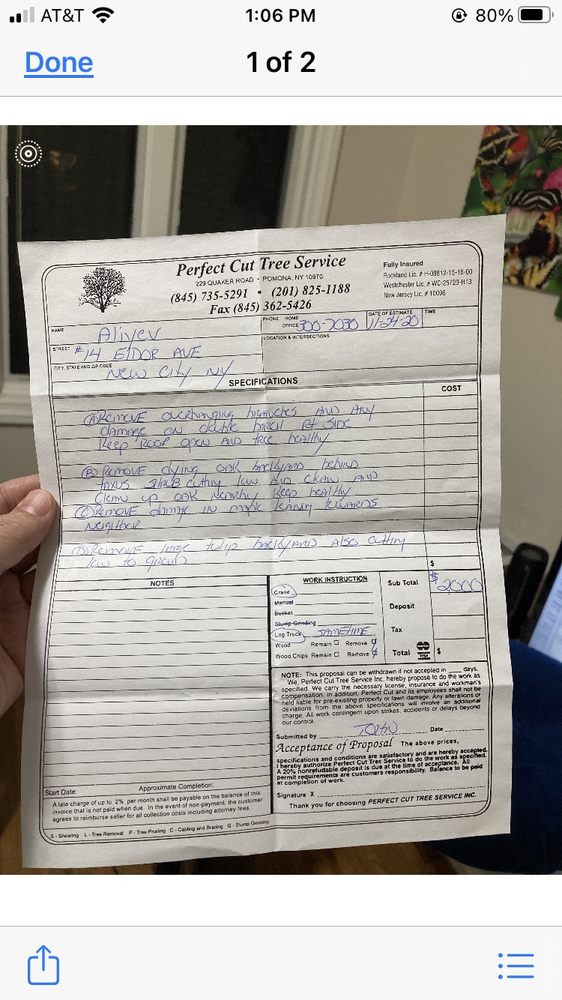 AT&T
1:06 PM
80%
Done
1 of 2
Perfect Cut Tree Service
229 QUAKER ROAD • POMONA, NY 10970
(845) 735-5291 • (201) 825-1188
Fax (845) 362-5426
Fully Insured
Rockland Lic. # H-08812-15-16-00
Westchester Lic. # WC-25720-H13
New Jersey Lic. # 10096
NAME
Aliyev
PHONE HOME
OFFICE 300-7030
DATE OF ESTIMATE
11/24/20
TIME
STREET #14 ELDOR AVE
LOCATION & INTERSECTIONS
CITY, STATE AND ZIP CODE
New City NY
SPECIFICATIONS
COST
(A) REMOVE overhanging branches AND ANY
damage on double birch Rt side
Keep Roof open AND tree healthy
(B) REMOVE dying oak backyard behind
taxus shed cutting low AND CLEAN AND
Clean up oak nearby Keep healthy
(C) REMOVE damage IN maple leaning towards
Neighbor
(D) REMOVE large tulip backyard Also cutting
low to ground
$
NOTES
WORK INSTRUCTION
Crane
Manual
Bucket
Stump Grinding
Log Truck SAMETIME
Wood Remain Remove
Wood Chips Remain Remove
Sub Total $2000
Deposit
Tax
Total $
NOTE: This proposal can be withdrawn if not accepted in days.
We, Perfect Cut Tree Service Inc. hereby propose to do the work as
specified. We carry the necessary license, insurance and workman's
compensation. In addition, Perfect Cut and its employees shall not be
held liable for pre-existing property or lawn damage. Any alterations or
deviations from the above specifications will involve an additional
charge. All work contingent upon strikes, accidents or delays beyond
our control.
Submitted by JOHN Date
Acceptance of Proposal The above prices,
specifications and conditions are satisfactory and are hereby accepted.
I hereby authorize Perfect Cut Tree Service to do the work as specified.
A 20% nonrefundable deposit is due at the time of acceptance. All
permit requirements are customers responsibility. Balance to be paid
at completion of work.
Signature X
Thank you for choosing PERFECT CUT TREE SERVICE INC.
Start Date: Approximate Completion:
A late charge of up to 2% per month shall be payable on the balance of this
invoice that is not paid when due. In the event of non-payment, the customer
agrees to reimburse seller for all collection costs including attorney fees.
S - Shearing L - Tree Removal P - Tree Pruning C - Cabling and Bracing G - Stump Grinding